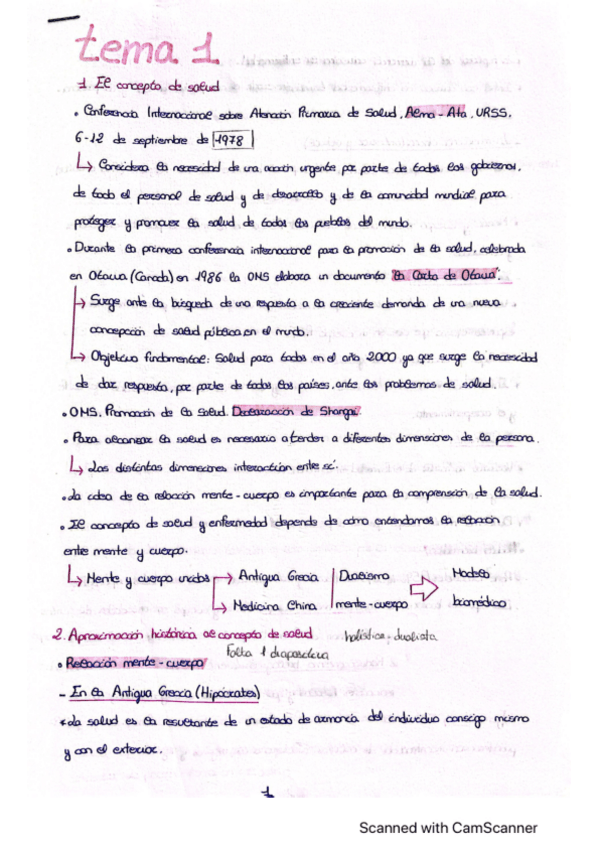 tema 1
1. El concepto de salud
• Conferencia Internacional sobre Atención Primaria de Salud, Alma-Ata, URSS,
6-12 de septiembre de 1978
↳ Considera la necesidad de una acción urgente por parte de todos los gobiernos,
de todo el personal de salud y de desarrollo y de la comunidad mundial para
proteger y promover la salud de todos los pueblos del mundo.
• Durante la primera conferencia internacional para la promoción de la salud, celebrada
en Otawa (Canadá) en 1986 la OMS elabora un documento "la Carta de Otawa":
→ Surge ante la búsqueda de una respuesta a la creciente demanda de una nueva
concepción de salud pública en el mundo.
→ Objetivo fundamental: Salud para todos en el año 2000 ya que surge la necesidad
de dar respuesta, por parte de todos los países, ante los problemas de salud.
• OMS. Promoción de la Salud. Declaración de Shangai
• Para alcanzar la salud es necesario atender a diferentes dimensiones de la persona.
↳ Las distintas dimensiones interactúan entre sí.
• La idea de la relación mente-cuerpo es importante para la comprensión de la salud.
• El concepto de salud y enfermedad depende de cómo entendamos la relación
entre mente y cuerpo.
↳ Mente y cuerpo unidos → Antigua Grecia | Dualismo ⇨ Modelo
→ Medicina China | mente-cuerpo biomédico
2. Aproximación histórica al concepto de salud holística-dualista
• Relación mente-cuerpo falta 1 diapositiva
- En la Antigua Grecia (Hipócrates)
* La salud es la resultante de un estado de armonía del individuo consigo mismo
y con el exterior.
1
Scanned with CamScanner